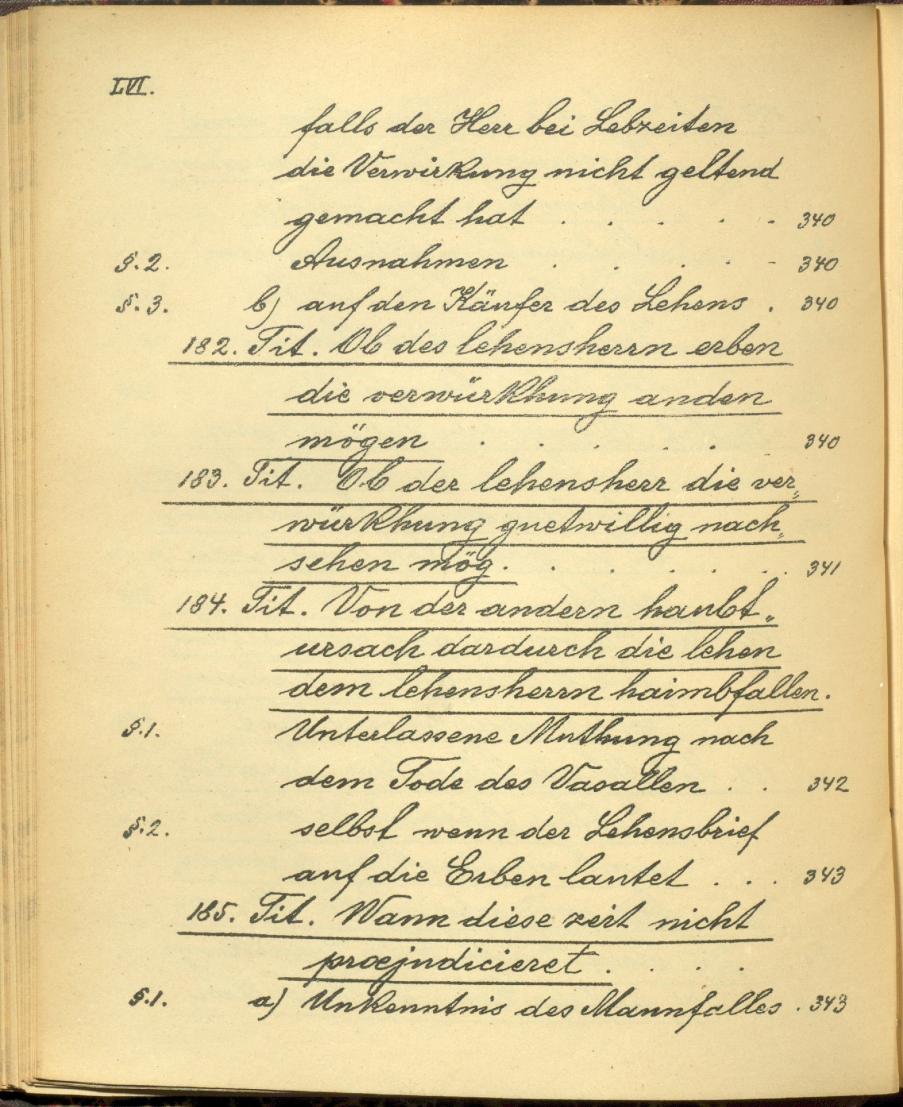 LVI.
falls der Herr bei Lebzeiten
die Verwirkung nicht geltend
gemacht hat . . . . . - 340
§. 2. Ausnahmen . . . . - 340
§. 3. b) auf den Käufer des Lehens . 340
182. Tit. Ob des lehensherrn erben
die verwürkhung anden
mögen . . . . . . 340
183. Tit. Ob der lehensherr die ver„
würkhung guetwillig nach„
sehen mög. . . . . . . 341
184. Tit. Von der andern haubt„
ursach dardurch die lehen
dem lehensherrn haimbfallen.
§.1. Unterlassene Muthung nach
dem Tode des Vasallen . . 342
§.2. selbst wenn der Lehensbrief
auf die Erben lautet . . . 343
185. Tit. Wann diese zeit nicht
præjudicieret . . . .
§.1. a) Unkenntnis des Mannfalles . 343